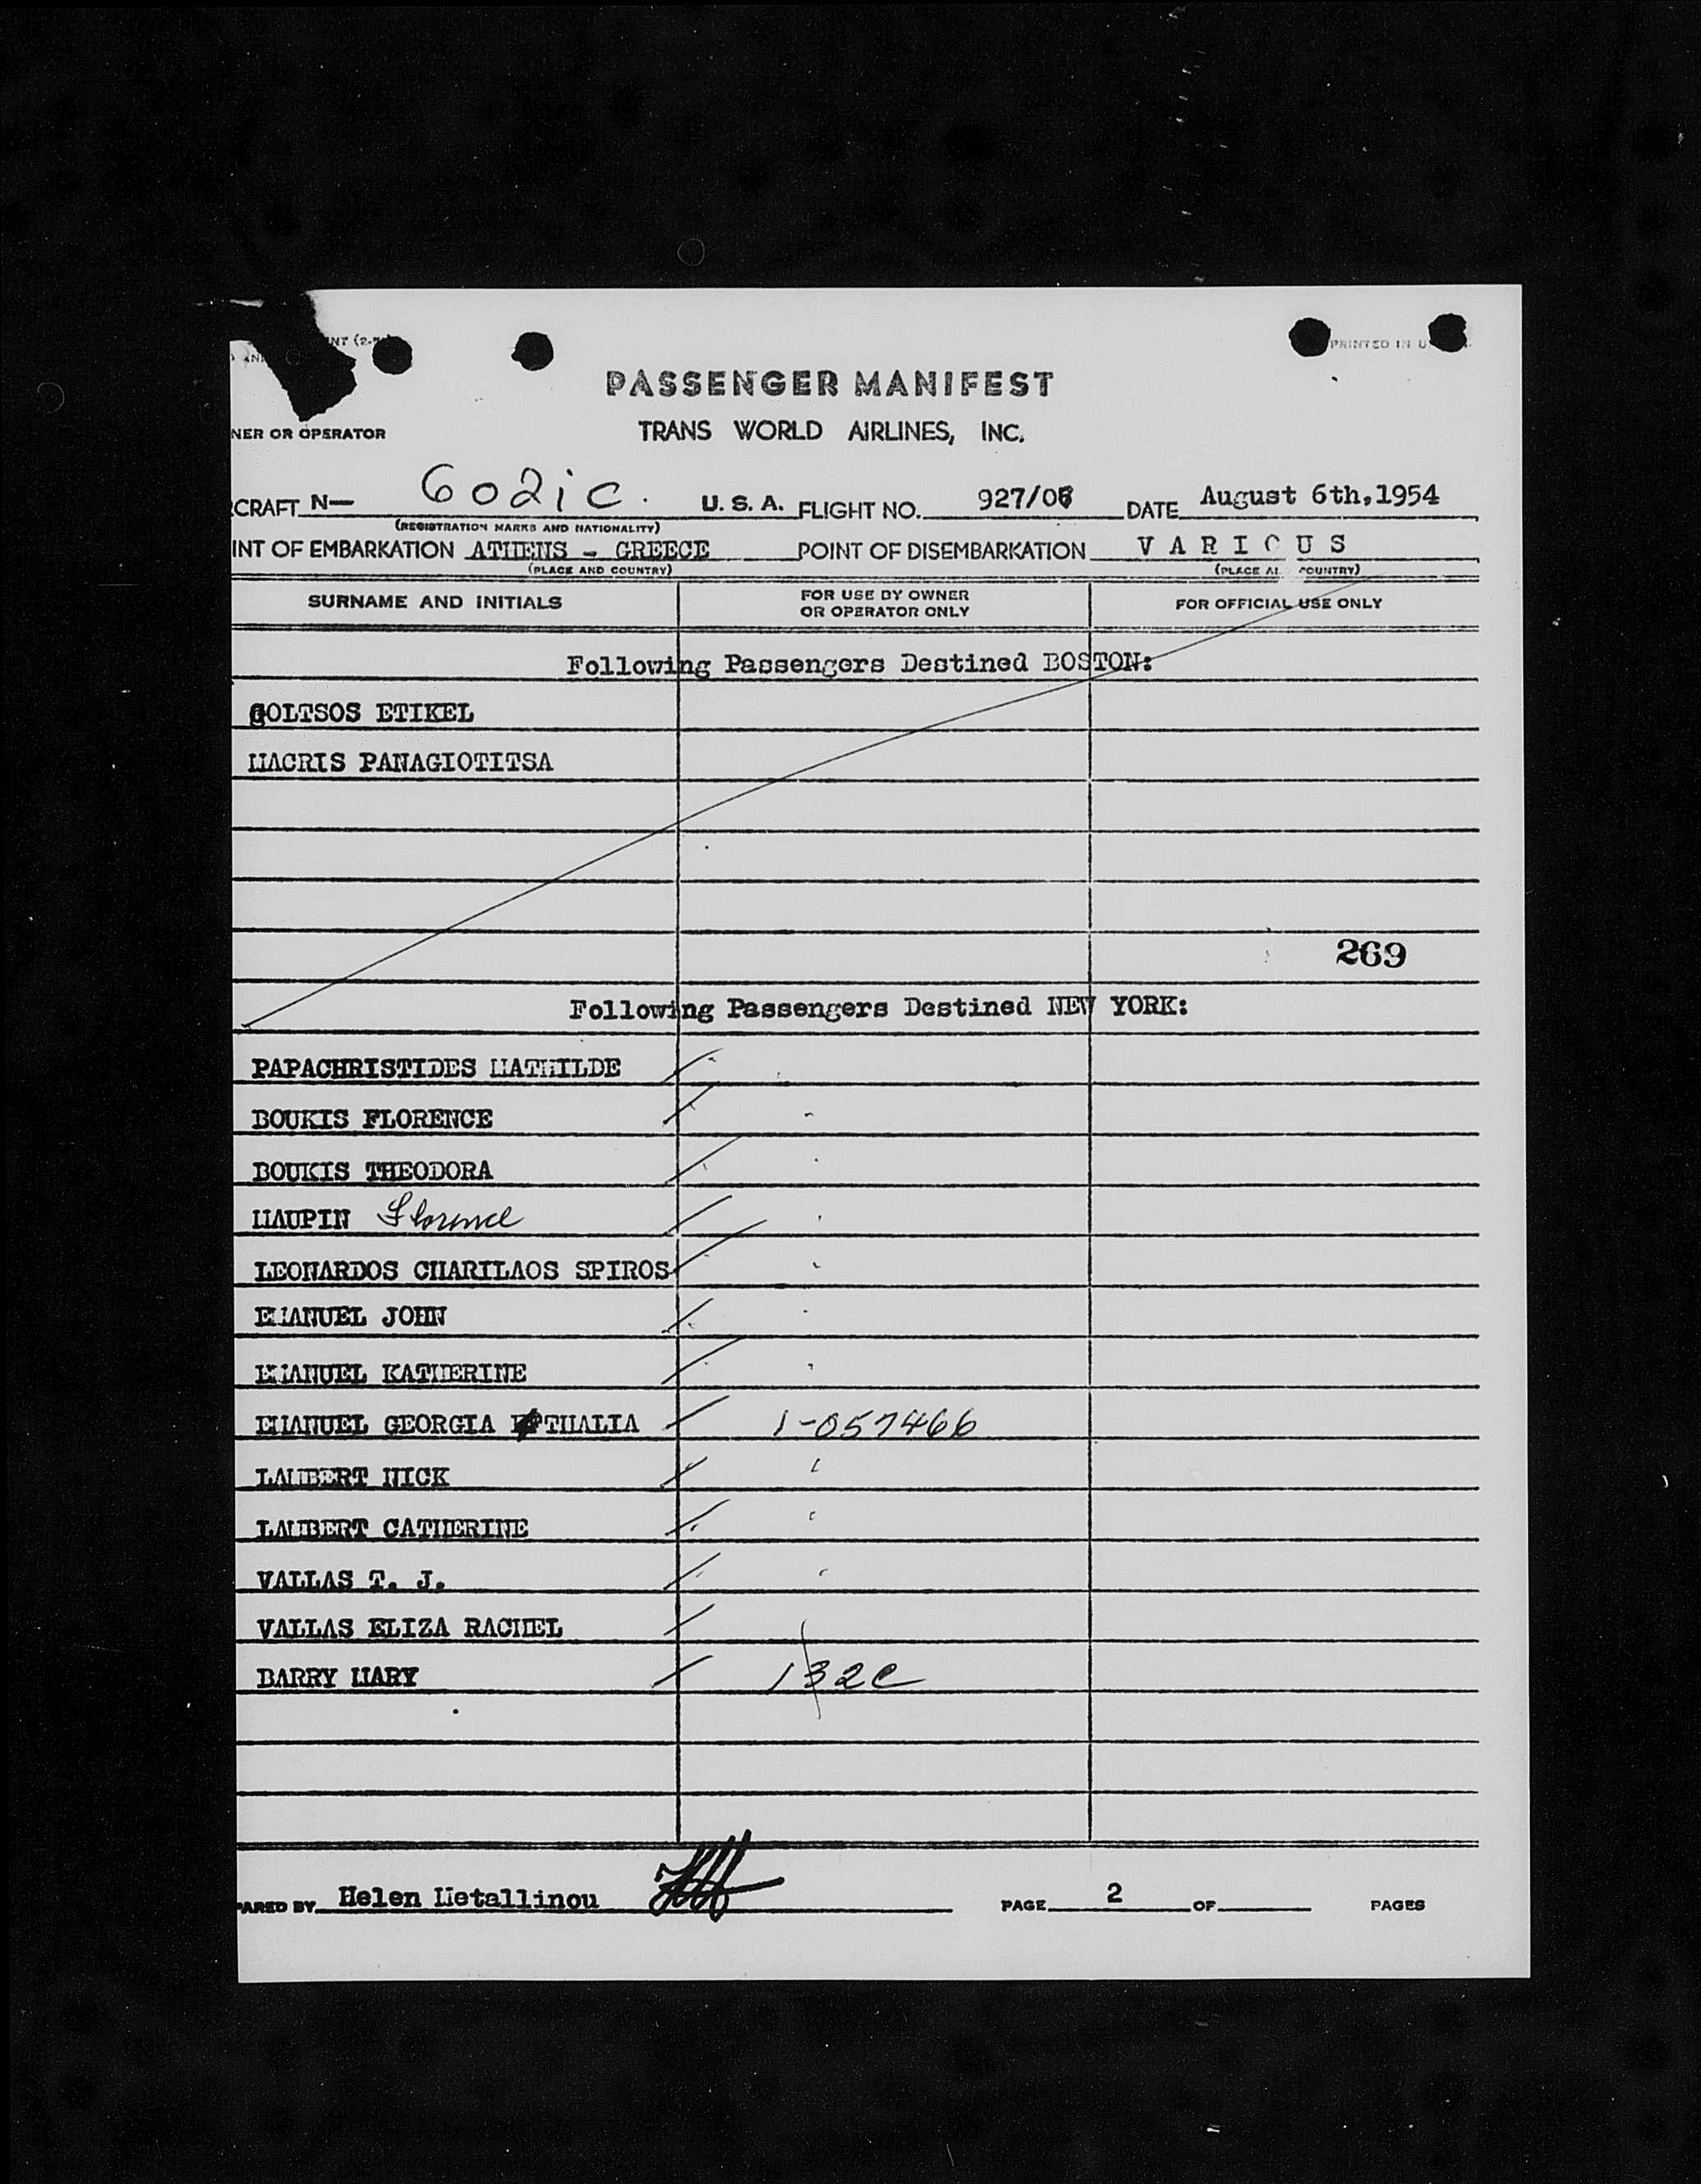 NT (2-
AN
PRINTED IN U
PASSENGER MANIFEST
NER OR OPERATOR
TRANS WORLD AIRLINES, INC.
CRAFT N— 6021C. U. S. A. FLIGHT NO. 927/06 DATE August 6th,1954
(REGISTRATION MARKS AND NATIONALITY)
INT OF EMBARKATION ATHENS - GREECE POINT OF DISEMBARKATION V A R I O U S
(PLACE AND COUNTRY) (PLACE AND COUNTRY)
SURNAME AND INITIALS FOR USE BY OWNER OR OPERATOR ONLY FOR OFFICIAL USE ONLY
Following Passengers Destined BOSTON:
GOLTSOS ETIKEL
MACRIS PANAGIOTITSA
269
Following Passengers Destined NEW YORK:
PAPACHRISTIDES MATHILDE
BOUKIS FLORENCE
BOUKIS THEODORA
MAUPIN Florence
LEONARDOS CHARILAOS SPIROS
EMANUEL JOHN
EMANUEL KATHERINE
EMANUEL GEORGIA THALIA 1-057466
LAMBERT NICK
LAMBERT CATHERINE
VALLAS T. J.
VALLAS ELIZA RACHEL
BARRY MARY 132C
PARED BY Helen Metallinou PAGE 2 OF PAGES